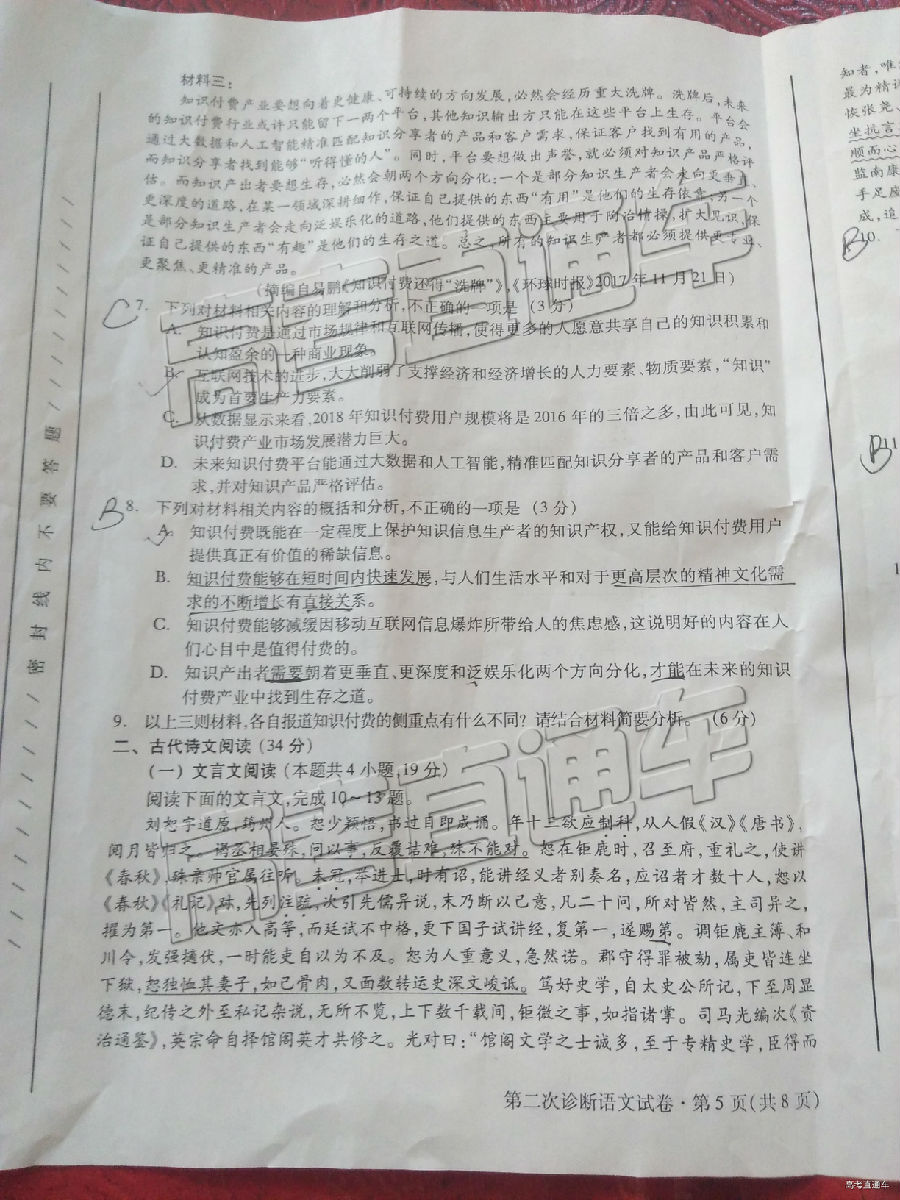 材料三：
知识付费产业要想向着更健康、可持续的方向发展，必然会经历重大洗牌。洗牌后，未来
的知识付费行业或许只能留下一两个平台，其他知识输出方只能在这些平台上生存。平台会
通过大数据和人工智能精准匹配知识分享者的产品和客户需求，保证客户找到有用的产品，
而知识分享者找到能够“听得懂的人”。同时，平台要想做出声誉，就必须对知识产品严格评
估。而知识产出者要想生存，必然会朝两个方向分化：一个是部分知识生产者会走向更垂直、
更深度的道路，在某一领域深耕细作，保证自己提供的东西“有用”是他们的生存依靠；另一个
是部分知识生产者会走向泛娱乐化的道路，他们提供的东西主要用于陶冶情操，扩大见识，保
证自己提供的东西“有趣”是他们的生存之道。总之，所有的知识生产者都必须提供更专业、
更聚焦、更精准的产品。
（摘编自易鹏《知识付费还得“洗牌”》，《环球时报》2017年11月21日）
C
7. 下列对材料相关内容的理解和分析，不正确的一项是（3分）
A. 知识付费是通过市场规律和互联网传播，使得更多的人愿意共享自己的知识积累和
认知盈余的一种商业现象。
B. 互联网技术的进步，大大削弱了支撑经济和经济增长的人力要素、物质要素，“知识”
成为首要生产力要素。
C. 从数据显示来看，2018年知识付费用户规模将是2016年的三倍之多，由此可见，知
识付费产业市场发展潜力巨大。
D. 未来知识付费平台能通过大数据和人工智能，精准匹配知识分享者的产品和客户需
求，并对知识产品严格评估。
B
8. 下列对材料相关内容的概括和分析，不正确的一项是（3分）
A. 知识付费既能在一定程度上保护知识信息生产者的知识产权，又能给知识付费用户
提供真正有价值的稀缺信息。
B. 知识付费能够在短时间内快速发展，与人们生活水平和对于更高层次的精神文化需
求的不断增长有直接关系。
C. 知识付费能够减缓因移动互联网信息爆炸所带给人的焦虑感，这说明好的内容在人
们心目中是值得付费的。
D. 知识产出者需要朝着更垂直、更深度和泛娱乐化两个方向分化，才能在未来的知识
付费产业中找到生存之道。
9. 以上三则材料，各自报道知识付费的侧重点有什么不同？请结合材料简要分析。（6分）
二、古代诗文阅读（34分）
（一）文言文阅读（本题共4小题，19分）
阅读下面的文言文，完成10～13题。
刘恕字道原，筠州人。恕少颖悟，书过目即成诵。年十三欲应制科，从人假《汉》《唐书》，
阅月皆归之。谒丞相晏殊，问以事，反覆诘难，殊不能对。恕在钜鹿时，召至府，重礼之，使讲
《春秋》，殊亲帅官属往听。未冠，举进士，时有诏，能讲经义者别奏名，应诏者才数十人，恕以
《春秋》《礼记》对，先列注疏，次引先儒异说，末乃断以己意，凡二十问，所对皆然，主司异之，
擢为第一。他文亦入高等，而廷试不中格，更下国子试讲经，复第一，遂赐第。调钜鹿主簿、和
川令，发强擿伏，一时能吏自以为不及。恕为人重意义，急然诺。郡守得罪被劾，属吏皆连坐
下狱，恕独恤其妻子，如己骨肉，又面数转运史深文峻诋。笃好史学，自太史公所记，下至周显
德末，纪传之外至私记杂说，无所不览，上下数千载间，钜微之事，如指诸掌。司马光编次《资
治通鉴》，英宗命自择馆阁英才共修之。光对曰：“馆阁文学之士诚多，至于专精史学，臣得而
第二次诊断语文试卷·第5页（共8页）
密封线内不要答题
知者，唯
最为精详
坐抗言
顺而心
监南康
手足废
成，追
B10.
B11
高考直通车
高考直通车
高考直通车